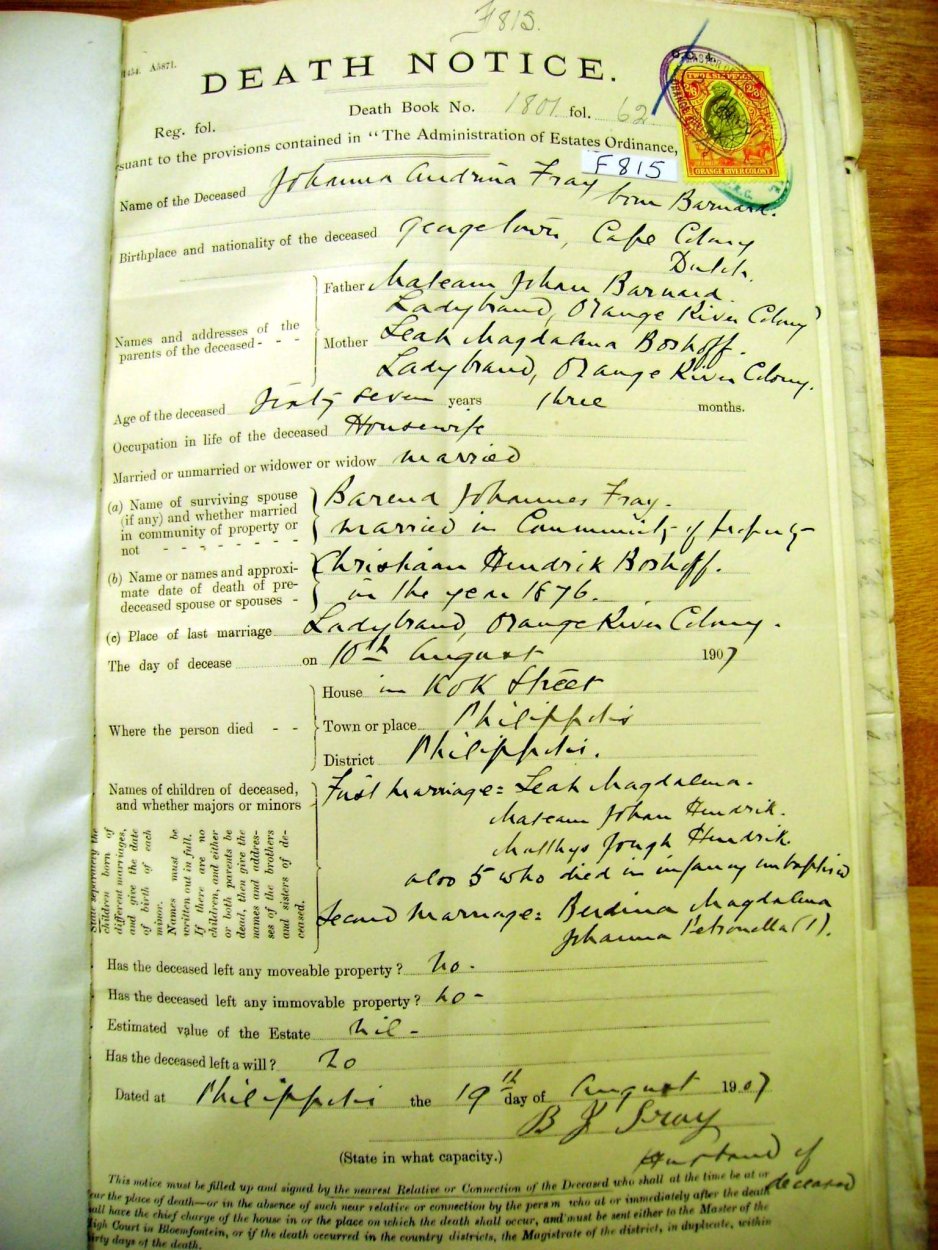 F815.
1454. A5871.
DEATH NOTICE.
Death Book No. 1801 fol. 62
Reg. fol.
TWO & SIX PENCE
2/6
ORANGE RIVER COLONY
suant to the provisions contained in "The Administration of Estates Ordinance,
F815
Name of the Deceased Johanna Andrina Fray born Barnard.
Birthplace and nationality of the deceased Georgetown, Cape Colony
Dutch.
Names and addresses of the parents of the deceased - - -
Father Mateam Johan Barnard.
Ladybrand, Orange River Colony
Mother Leah Magdalena Boshoff.
Ladybrand, Orange River Colony.
Age of the deceased sixty seven years three months.
Occupation in life of the deceased Housewife
Married or unmarried or widower or widow married
(a) Name of surviving spouse (if any) and whether married in community of property or not - - - - - - -
Barend Johannes Fray.
married in Community of property
(b) Name or names and approximate date of death of predeceased spouse or spouses -
Christiaan Hendrik Boshoff.
in the year 1876.
(c) Place of last marriage Ladybrand, Orange River Colony.
The day of decease on 10th August 1907
Where the person died - -
House in Kok Street
Town or place Philippolis
District Philippolis.
Names of children of deceased, and whether majors or minors
State separately the children born of different marriages, and give the date of birth of each minor. Names must be written out in full. If there are no children, and either or both parents be dead, then give the names and addresses of the brothers and sisters of deceased.
First marriage = Leah Magdalena.
Mateam Johan Hendrik.
Matthys Hendrik.
also 5 who died in infancy unbaptised
Second marriage = Berdina Magdalena
Johanna Petronella (1).
Has the deceased left any moveable property? no -
Has the deceased left any immovable property? no -
Estimated value of the Estate nil -
Has the deceased left a will? no
Dated at Philippolis the 19th day of August 1907
B J Fray
(State in what capacity.) Husband of
deceased
This notice must be filled up and signed by the nearest Relative or Connection of the Deceased who shall at the time be at or
ear the place of death—or in the absence of such near relative or connection by the person who at or immediately after the death
all have the chief charge of the house in or the place on which the death shall occur, and must be sent either to the Master of the
igh Court in Bloemfontein, or if the death occurred in the country districts, the Magistrate of the district, in duplicate, within
irty days of the death.